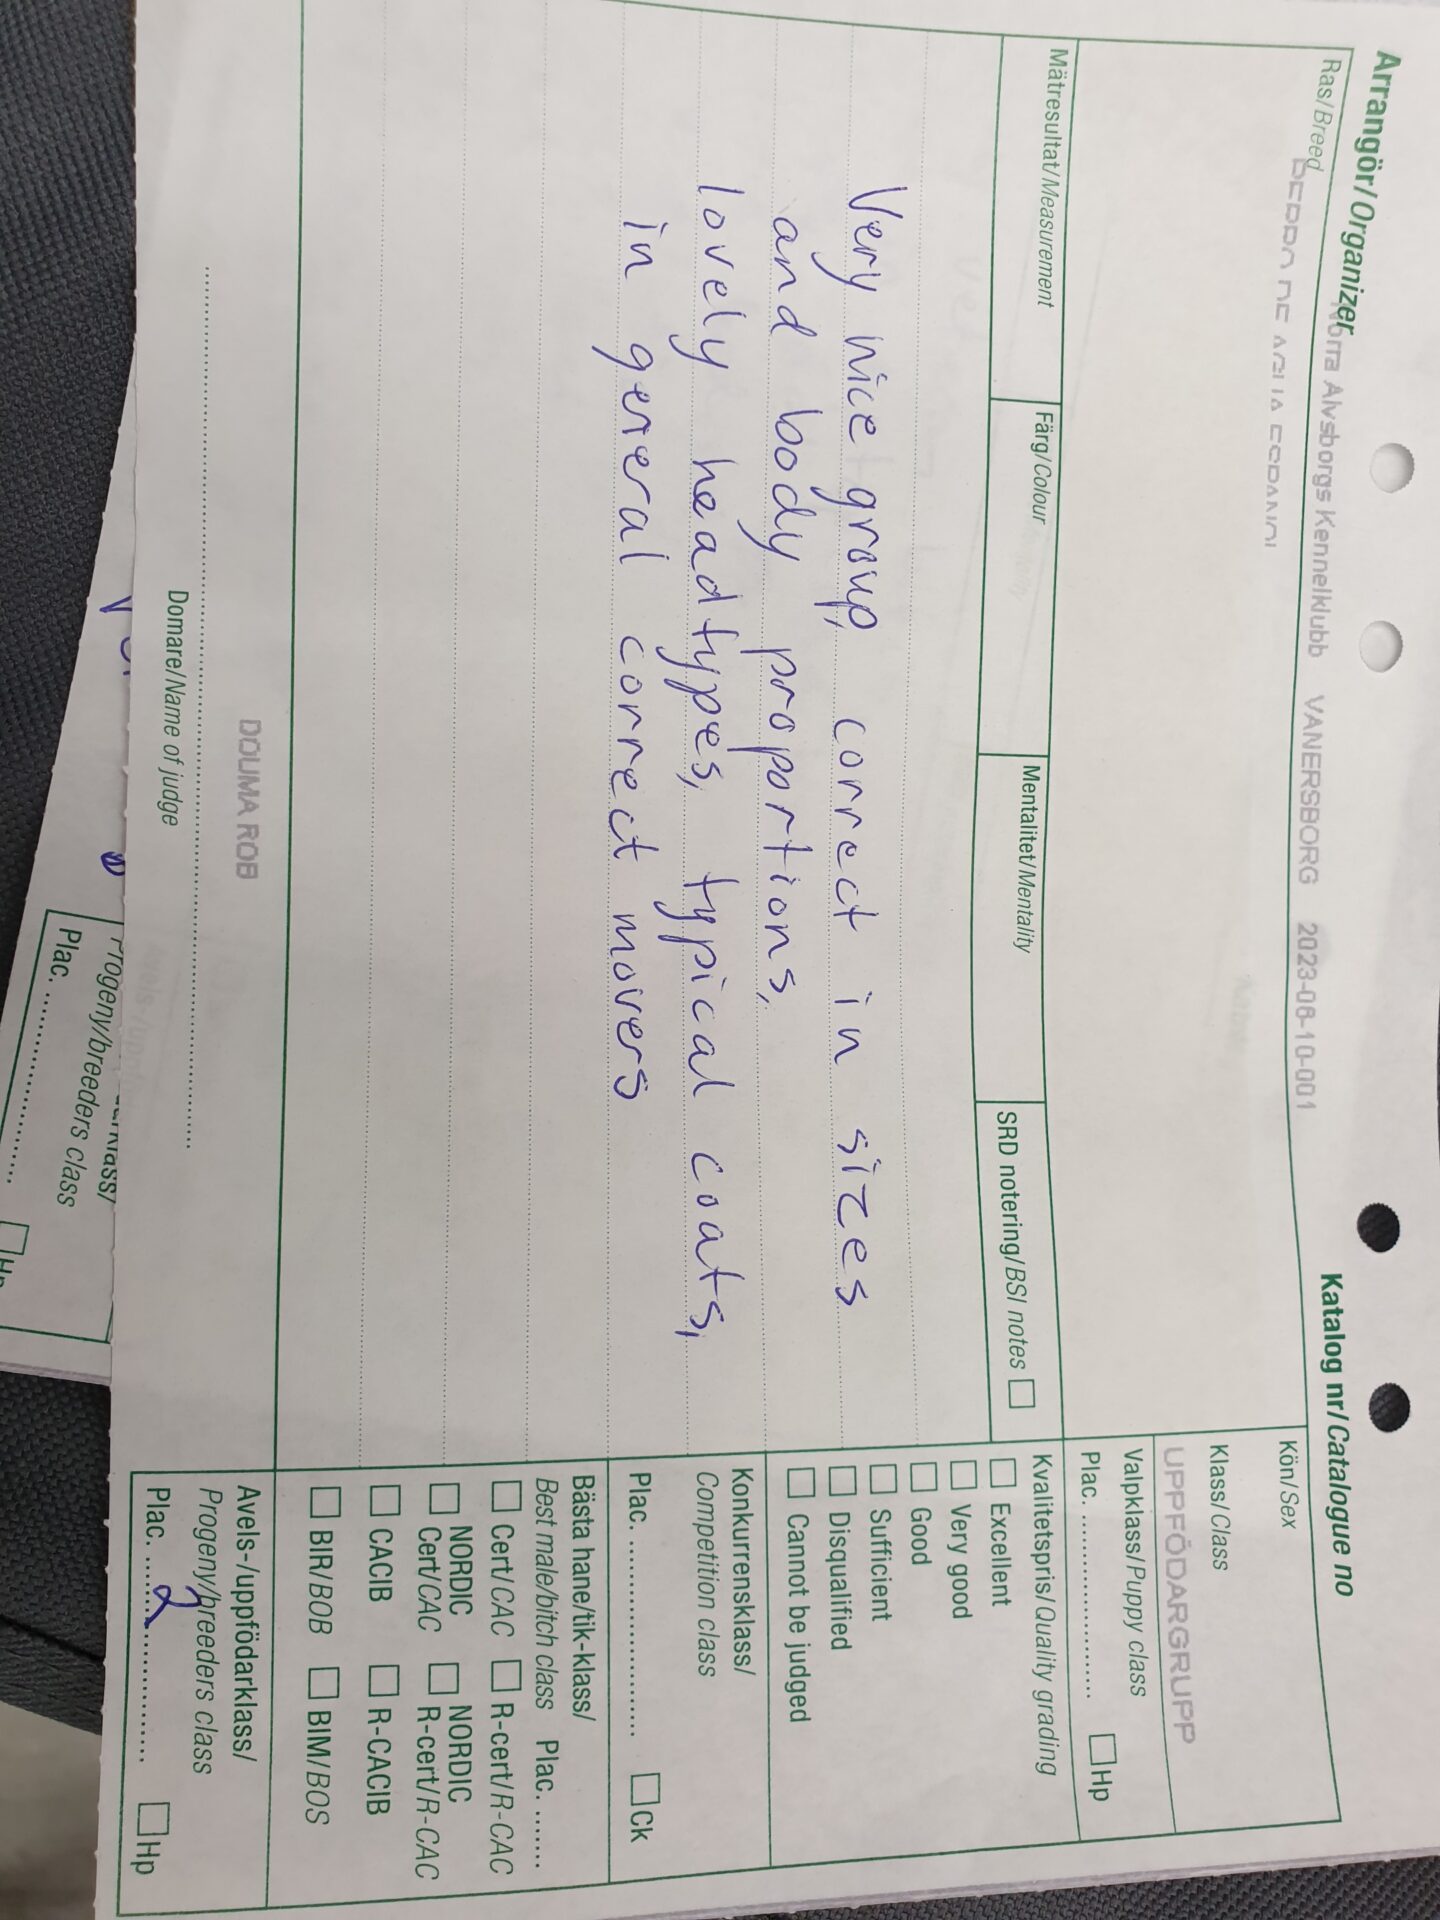 Arrangör/Organizer
Norra Älvsborgs Kennelklubb VANERSBORG 2023-06-10-001
Katalog nr/Catalogue no
Ras/Breed
Kön/Sex
Klass/Class
UPPFÖDARGRUPP
Valpklass/Puppy class
Plac. .................... Hp
Mätresultat/Measurement
Färg/Colour
Mentalitet/Mentality
SRD notering/BSI notes
Kvalitetspris/Quality grading
Excellent
Very good
Good
Sufficient
Disqualified
Cannot be judged
Very nice group, correct in sizes
and body proportions,
lovely headtypes, typical coats,
in general correct movers
Konkurrensklass/
Competition class
Plac. .................... Ck
Bästa hane/tik-klass/
Best male/bitch class Plac. .......
Cert/CAC R-cert/R-CAC
NORDIC NORDIC
Cert/CAC R-cert/R-CAC
CACIB R-CACIB
BIR/BOB BIM/BOS
DOUMA ROB
Domare/Name of judge
Avels-/uppfödarklass/
Progeny/breeders class
Plac. ......2............ Hp
Progeny/breeders class
Plac. ....................
Hp